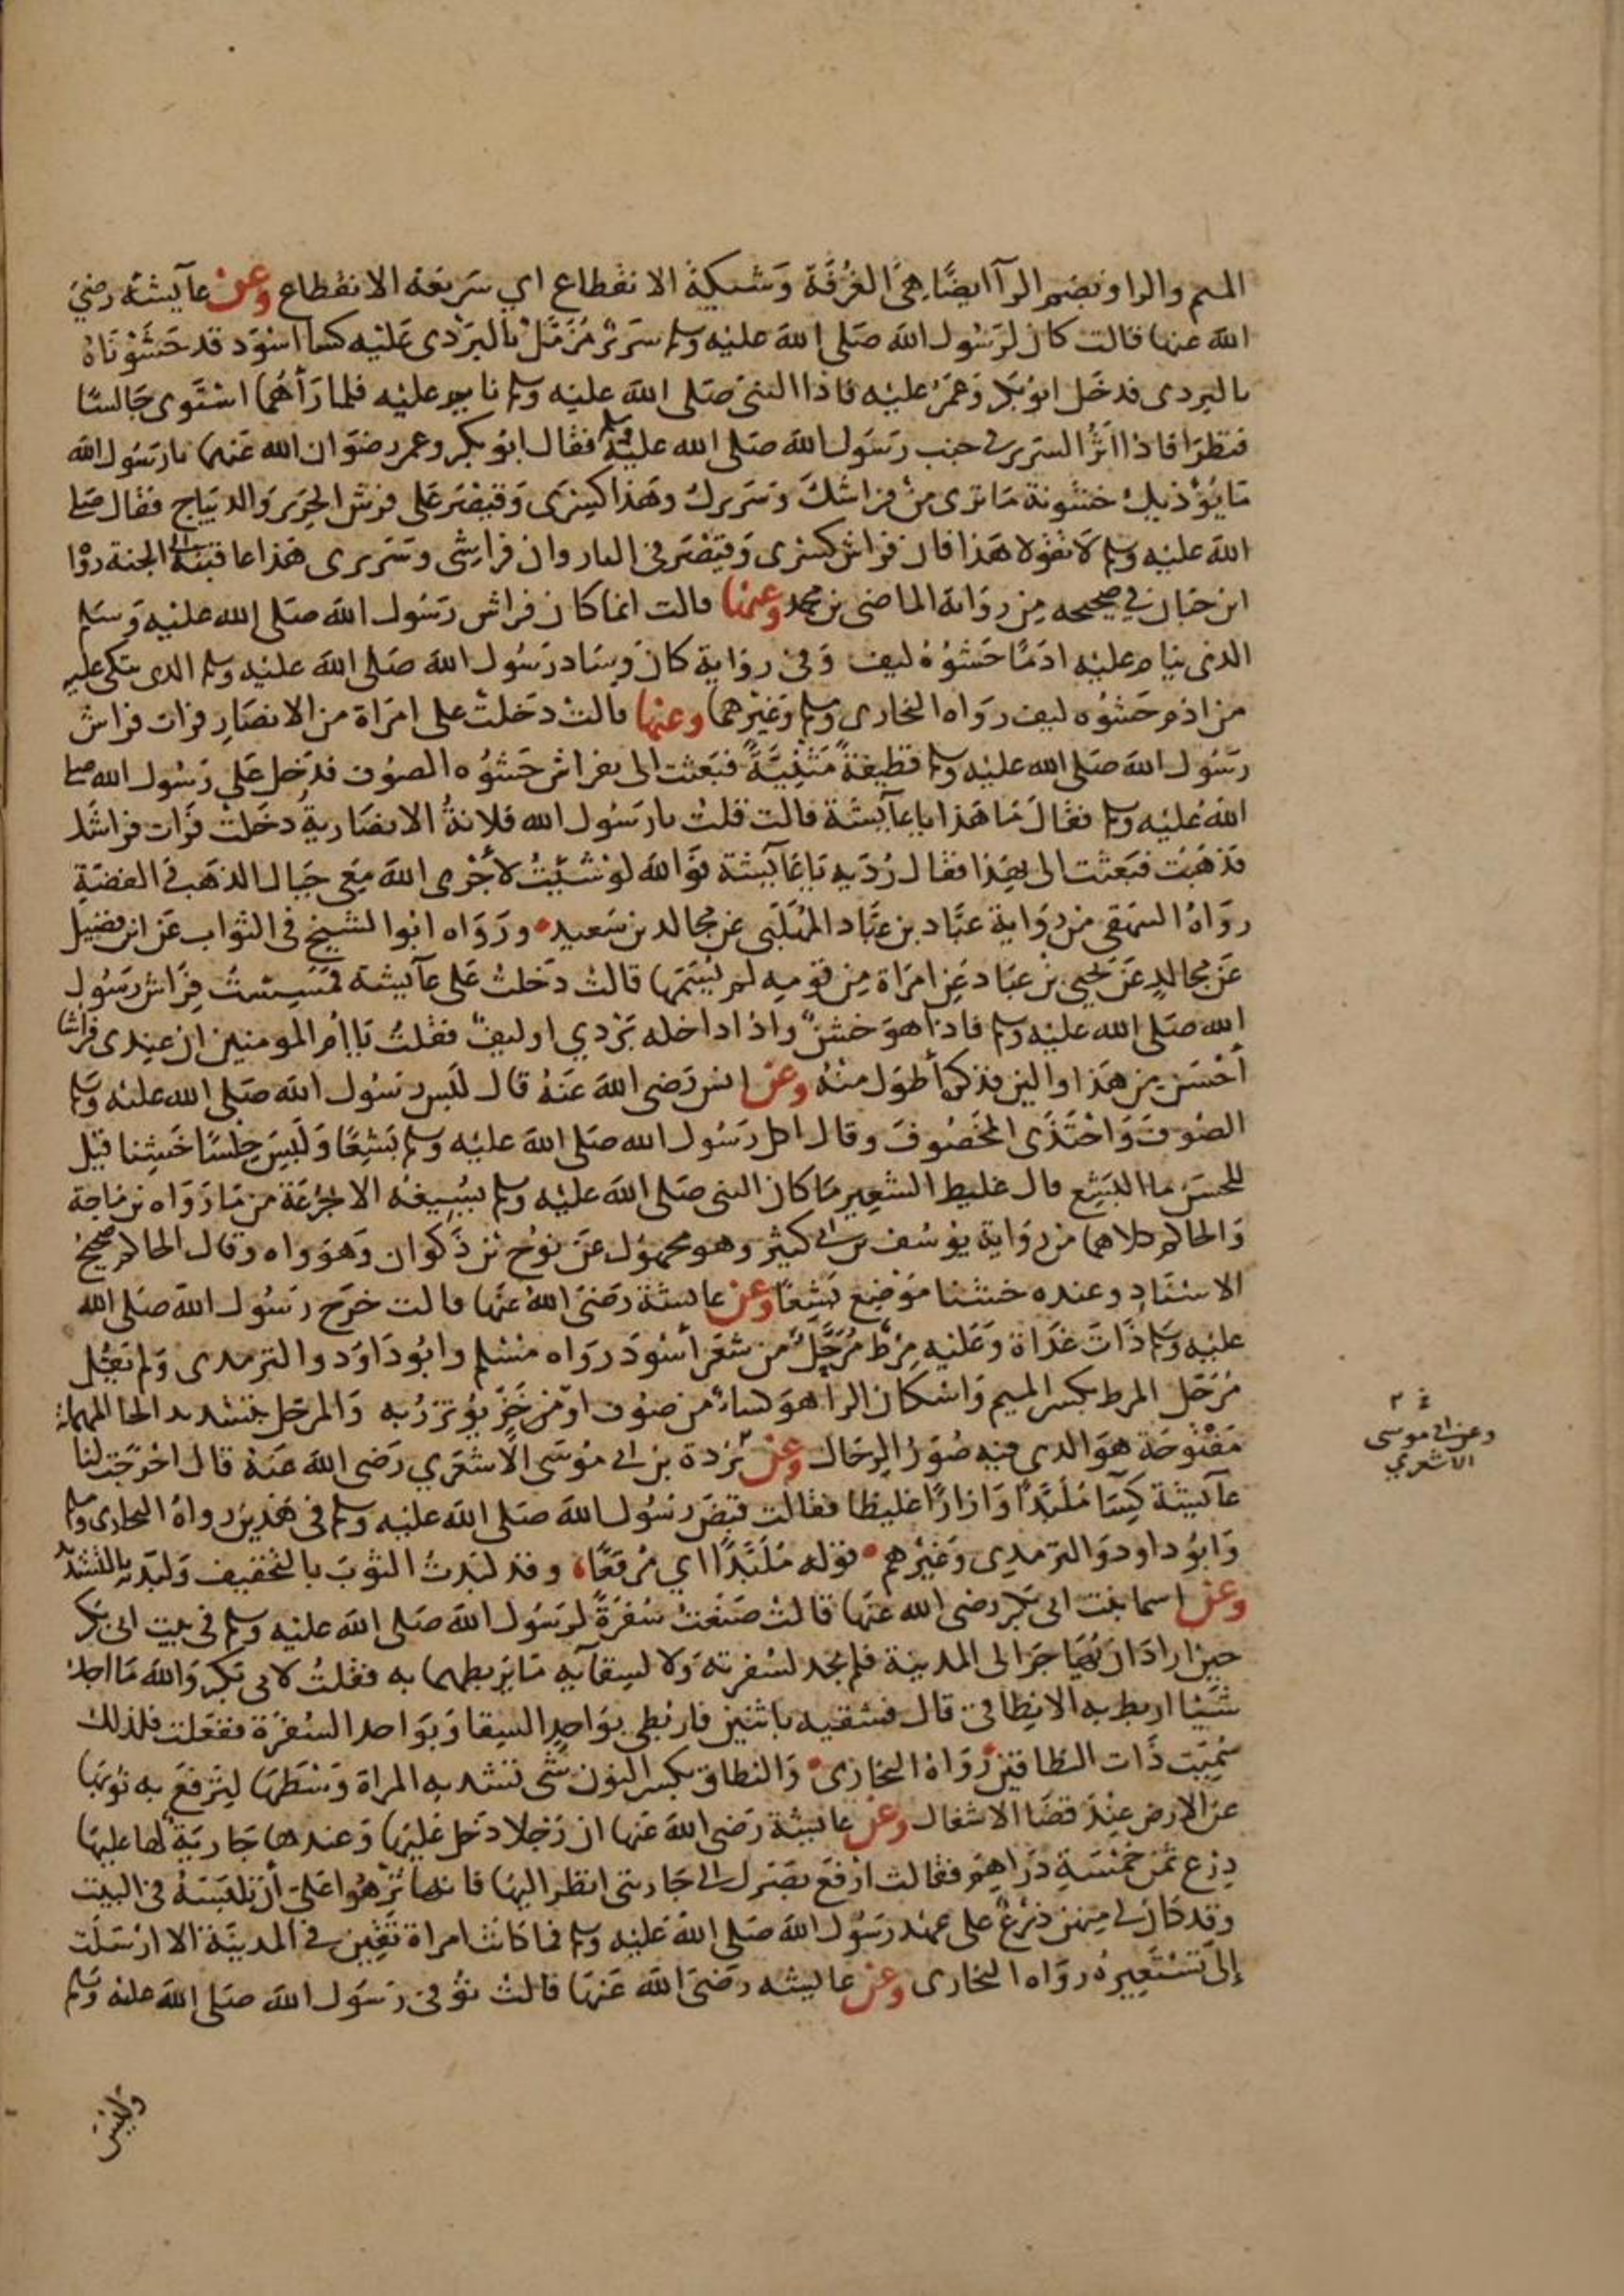 الميم والراء وبضم الرآ ايضًا هي الغُرْفَة وَشيكة الانقطاع اي سَريعَة الانقطاع وعن عآيشة رضيَ
اللهَ عنها قالت كان لرَسُول اللهَ صَلى الله عليْه وسلم سَريرٌ مُزَمَّلٌ بالبَرْدى عَليْه كسا اسْوَد قد حَشَوْنَاهُ
بالبردى فدخَل ابوُ بكر وَعمَرُ عليْه فاذا النبي صَلى الله عليه وسلم نايم عليْه فلما رَأهُما اسْتَوى جَالسًا
فنظرَا فاذا اثَرُ السرير في جنب رسَوُل الله صَلى الله عليْه وسلم فقال ابوُ بكر وعمر رضوَان الله عَنهما يا رَسُول الله
مَا يُؤْذيك خشُونة مَا ترى منْ فرَاشكَ وَسَريركَ وهَذا كِسْرَى وَقيْصَر عَلى فرش الحَرير وَالديبَاج فقال صَلى
الله عليْه وسلم لا تقولا هَذا فان فرَاش كسْرى وَقيْصَر في النار وان فراشِى وسَريرى هَذا عاقبته الى الجنة روَا
ابن حبَان في صَحيحه مِن رِوَاية الماضى بن محمد وعنها قالت انما كان فراش رسَوُل اللهَ صَلى الله عليْه وَسَلم
الذى ينام عليْه ادَمًا حَشوُهُ ليف وَفي روَاية كان وسَاد رَسُول الله صَلى الله عليْه وسلم الذى يتكى عليه
من ادَم حَشوُه ليف روَاه البخارى وسلم وَغيْرهما وعنها قالتْ دخلتْ على امرَاة من الانصَارِ فرات فرَاش
رسَوُل الله صَلى الله عليْه وسلم قطيفةً مَثْنيَّةً فبَعَثت الى بفراش حَشوُه الصوُف فدَخل عَلى رَسُول الله صلى
اللهُ عليْه وسلم فقالَ مَا هَذا يا عَآيشَة قالت قلتُ يا رَسُول الله فلانةُ الانصَاريةُ دخَلتْ فرَات فرَاشَك
فذهَبَت فبَعثت الى بهَذا فقال رُدّيه يَا عَآيشة فوَالله لوْ شيئْتُ لأجْرى الله مَعي جبَال الذهَب وَالفضَةِ
روَاهُ البيهقي من روَاية عبَّاد بن عبَّاد المُهَلَّبى عن مجالد بن سَعيد ورَوَاه ابوا الشيخ في الثواب عَن ابن فضيل
عَن مجالدٍ عَن يَحيى بن عبَاد عَن امرَاة مِن قومِه لم يُسَمّهَا قالتْ دَخلتُ عَلى عآيشة فمَسِسْتُ فِرَاش رَسُول
الله صَلى الله عليْه وسلم فاذا هوَ خشنٌ واذا داخله بَرْدي او ليفٌ فقلتُ يَا أمّ المومنين ان عِندى فراشا
أحْسَن مِن هَذا والين فذكر أطوَل منْهُ وعن انس رَضى اللهَ عَنهُ قال لَبس رَسُول الله صَلى الله عليْه وَسَلم
الصُوفَ وَاحْتَذَى المخَصُوفَ وقال اكل رَسُول الله صَلى الله عليْه وسلم بَشِعًا وَلَبسَ حِلْسًا خَشِنا قيْل
للحَسَن ما البَشِع قال غليظ الشعِير مَا كان النبي صَلى الله عليْه وسلم يسُيغُهُ الا بجُرْعَة من مَا رَوَاه بن مَاجة
وَالحاكم كلاهما من روَاية يوُسُف بن ابي كثير وهو مجهوُل عَن نوُح بن ذَكوَان وَهوَ واه وقال الحاكم صَحيحُ
الاسْنَادِ وعنده خشنا مَوْضِع بَشِعًا وعن عايشة رَضيَ الله عنهَا قالت خرَج رَسُول الله صَلى الله
عليْه وسَلم ذَاتَ غدَاة وَعَليْه مِرْط مُرَحَّل من شعَر أسْودَ روَاه مسْلم وابُو دَاوَد والترمذى وَلم يَقُل
مُرَحَّل المرط بكسر الميم وَاسْكان الرا هوَ كسَاءٌ من صُوف اوْ من خَزّ يُؤتزرُ به وَالمرَحّل بتشديد الحا المهملة
مَفْتوُحَة هوَ الذى فيه صُوَرُ الرحَال وعن بُرْدة بن ابي مُوسَى الأشعَري رَضى الله عَنهُ قال اخْرَجَت لنا
عآيشة كِسَا مُلَبَّدًا وَازارًا غليظا فقالت قبَضَ رَسُول الله صَلى الله عليْه وسلم في هَذين روَاهُ البخارى وسلم
وَابوُ داود وَالترمذِى وَغيْرهم قوْله مُلبَّدًا اي مُرَقعًا وقد لبَدتُ الثوبَ بالتخفيف وَلبّدته بالتشديد
وعن اسما بنت ابى بَكر رضى الله عَنهَا قالتْ صَنعْتُ سُفرَةً لرَسُول الله صَلى الله عليه وسلم في بيت ابى بَكر
حين ارادَ ان يُهَاجَر الى المدينة فلم نجد لسُفرته وَلا لسِقآيه مَا يَربطهما به فقلتُ لابى بَكر وَالله مَا اجدُ
شَيْئا اربط به الا نطاقي قال فشقيه باثنين فارْبطى بوَاحدِ السِقا وَبوَاحد السُفرَة ففعَلت فلذلك
سُمِيَت ذَات النطَاقين رَوَاهُ البخَارى وَالنطاق بكسر النوُن شَى تشد به المراة وَسَطهَا لِترْفَعَ به ثوبَها
عن الارضِ عِنْدَ قضَا الاشغال وعن عايشة رَضى الله عَنها ان رَجُلا دَخل عَليْهَا وَعندها جَاريَةٌ لها عليْهَا
دِرع ثمَن خمْسَة دَرَاهِم فقالت ارْفَعَ بصَرك الى جَاريتى انظر اليْهَا فانها تُزْهُوا عَلى أنْ تلبَسَهُ في البيْت
وقد كان لي مِنهن دِرْعٌ على عهْد رَسُول الله صَلى الله عَليْه وسلم فما كانت امراة تُقيّن في المدينَة الا ارْسَلَت
إلى تَسْتَعِيرهُ روَاه البخارى وعن عايشه رَضيَ الله عَنهَا قالتْ توُفي رَسَوُل الله صَلى الله عليْه وَسَلم
وعن ابي موسى
الاشعري
وليس